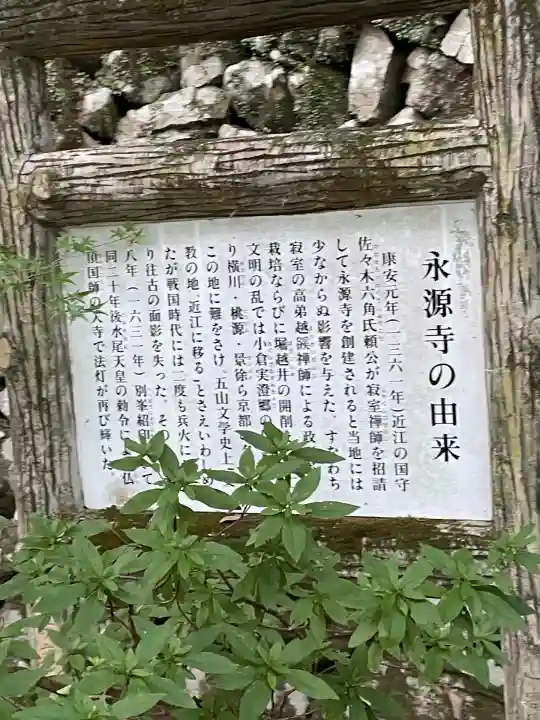 永源寺の由来
康安元年(一三六一年)近江の国守
佐々木六角氏頼公が寂室禅師を招請
して永源寺を創建されると当地には
少なからぬ影響を与えた。すなわち
寂室の高弟越渓禅師による政
栽培ならびに堀越井の開削
文明の乱では小倉実澄郷の
り横川・桃源・景徐ら京都
この地に難をさけ、五山文学史上
教の地、近江に移る」とさえいわしめ
たが戦国時代には二度も兵火に
り往古の面影を失った。その
八年(一六三一年)別峯紹印
同二十年後水尾天皇の勅令によ 仏
頂国師の入寺で法灯が再び輝いた。